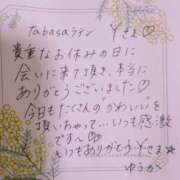 tabasaラテン Yさま♡
貴重なお休みの日に
会いに来て頂き、本当に
ありがとうございました♡
今日もたくさんのかわいいを
頂いちゃって...いつも感激
です〜
いつもありがとうYさま☆
ゆうか